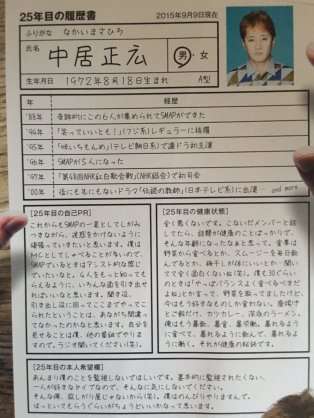 25年目の履歴書
2015年9月9日現在
ふりがな なかいまさひろ
氏名 中居正広 男・女
生年月日 1972年8月18日生まれ A型
年 経歴
'88年 奇跡的にこの6人が集められてSMAPができた
'94年 「笑っていいとも!」(フジ系)レギュラーに抜擢
'95年 「味いちもんめ」(テレビ朝日系)で連ドラ初主演
'96年 SMAPが5人になった
'97年 「第48回NHK紅白歌合戦」(NHK総合)で初司会
'00年 後にも先にもないドラマ「伝説の教師」(日本テレビ系)に出演 …and more
【25年目の自己PR】
これからもSMAPの一員としてしがみ
つきながら、迷惑をかけないように
頑張っていきたいと思います。僕は
MCとしてしゃべることが多いので、
SMAPでいるときはアシスト的な感じ
でいたいなと。みんをもっと知っても
らえるように、いろんな面を引き出せ
ればいいなと思います。聞き役、
引き出し役に回ってここまでやってこ
られたということは、あながち間違っ
てなかったのかなと思います。自分を
見せることは、他の番組でやりま
すので。ラジオ聞いてください(笑)。
【25年目の健康状態】
全く悪くないです。こないだメンバーと話
してたら、話題が健康のことばっかりで、
そんな年齢になったなぁと思って。食事は
野菜から食べるとか、スムージーを毎日飲
んでるとか、梅干しが体にいいとか…聞い
てて全く面白くない(笑)。僕も30ぐらい
のときは「やっぱバランスよく食べるべきだ
よね」とか言って、野菜を取ってましたけど、
今はもう好きなものしか食わない。唐揚げ
とご飯だけ、カツカレー、深夜のラーメン。
僕はもう暴飲、暴食、暴労働。暴れるよう
に食べて、暴れるように飲んで、暴れるよう
に働く。それが健康の秘訣です。
【25年目の本人希望欄】
あんまり僕のことを監視しないでほしいです。基本的に監視されたくない、
一人が好きなタイプなので、そんなに気にしないでください。
そんな僕、寂しがり屋じゃないから(笑)。僕はのんびりやりますんで、
ほっといてもらうぐらいがちょうどいいかなって思います。